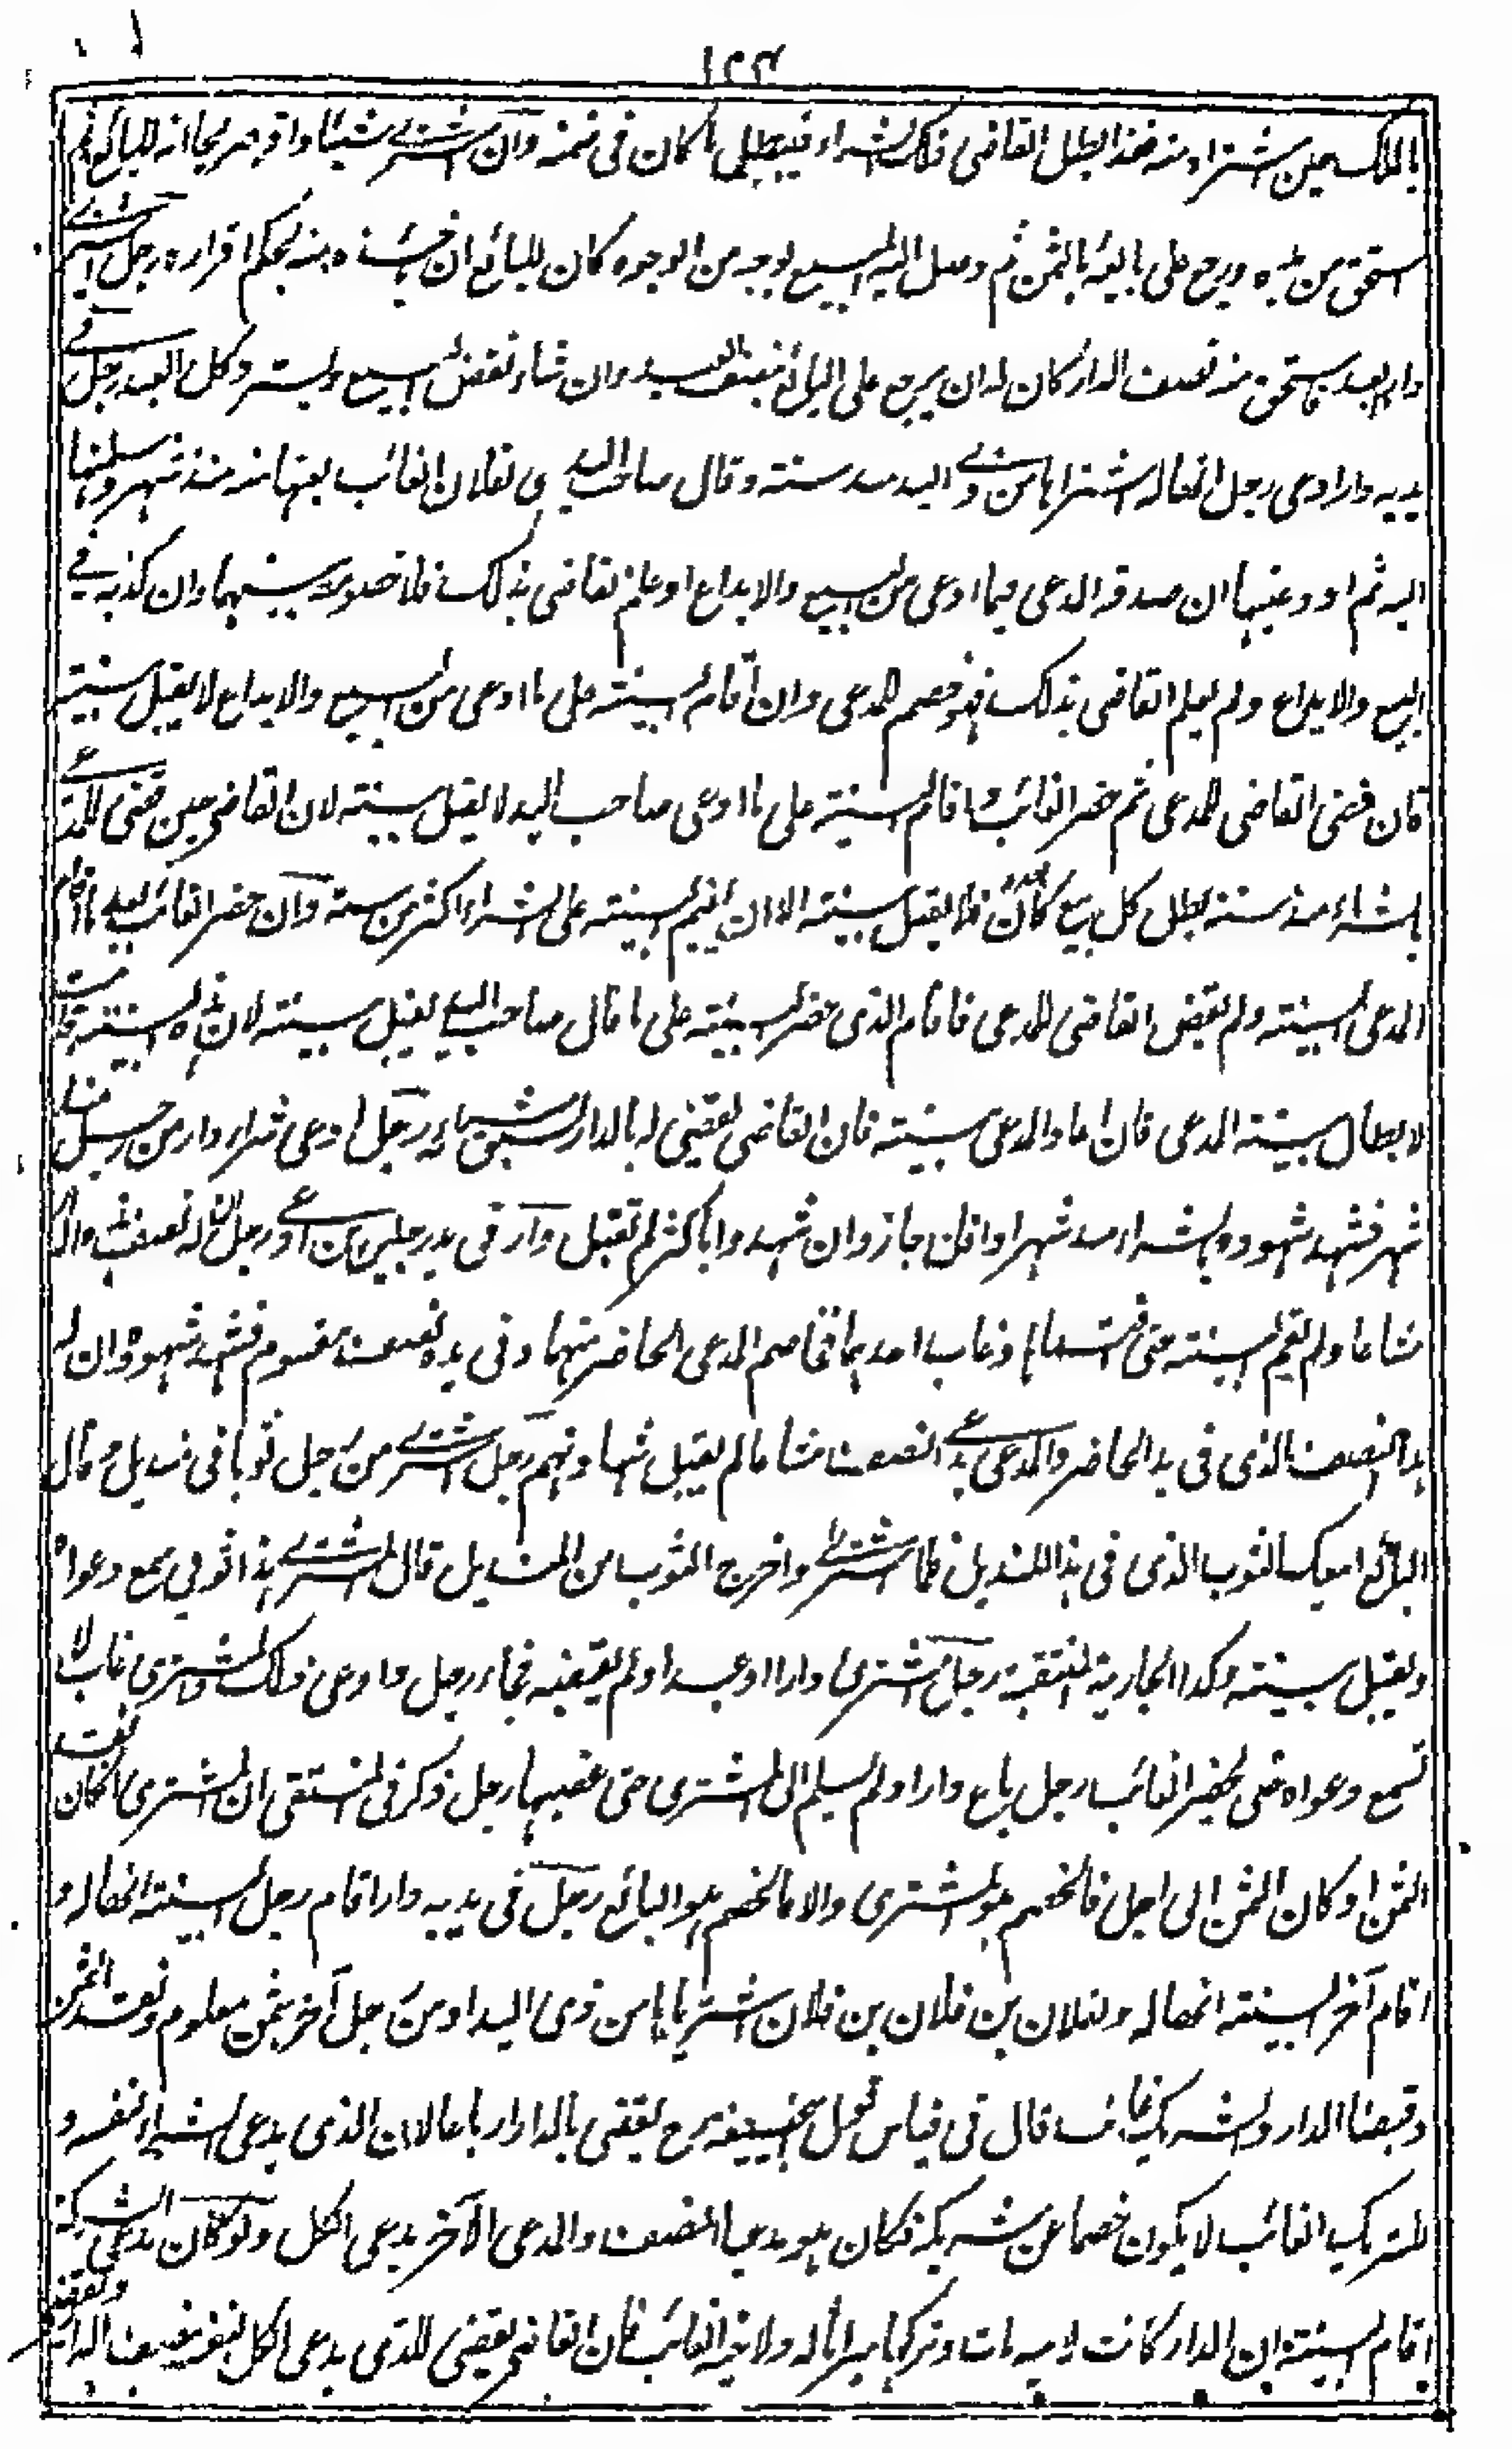 ١٢٣
بالملك حين اشتراه منه فاذا ابطل القاضى ذلك الشراء فيبطل ما كان فى ضمنه وان اشترى شيئا واقر صريحا انه للبائع ثم
استحق من يده ورجع على بائعه بالثمن ثم وصل اليه المبيع بوجه من الوجوه كان للبائع ان يأخذه منه بحكم اقراره رجل اشترى
دارا بعبد فاستحق منه نصف الدار كان له ان يرجع على البائع بنصف العبد وان شاء نقض البيع واسترد كل العبد رجل فى
يديه دار ادعى رجل انها له اشتراها من ذى اليد منذ سنة وقال صاحب اليد هى لفلان الغائب بعتها منه منذ شهر وسلمتها
اليه ثم اودعنيها ان صدقه المدعى فيما ادعى من البيع والايداع او علم القاضى بذلك فلا خصومة بينهما وان كذبه فى
البيع والايداع ولم يعلم القاضى بذلك فهو خصم للمدعى وان اقام البينة على ما ادعى من البيع والايداع لا يقبل بينته
فان قضى القاضى للمدعى ثم حضر الغائب فاقام البينة على ما ادعى صاحب اليد لا يقبل بينته لان القاضى حين قضى للمدعى
بالشراء منذ سنة بطل كل بيع كان بعده فلا يقبل بينته الا ان يقيم البينة على الشراء اكثر من سنة وان حضر الغائب بعد ما اقام
المدعى البينة ولم يقض القاضى للمدعى فاقام الذى حضر البينة على ما قال صاحب اليد يقبل بينته لان هذه البينة قامت
لابطال بينة المدعى فان اعاد المدعى بينته فان القاضى يقضى له بالدار رجل ادعى شراء دار من رجل منذ
شهر فشهد شهوده بالشراء منذ شهر او اقل جاز وان شهدوا باكثر لم تقبل دار فى يد رجلين ادعى رجل ان له نصفها
مشاعا ولم يقم البينة حتى اقتسماها وغاب احدهما فخاصم المدعى الحاضر منهما وفى يده نصف مقسوم فشهد شهوده ان له
هذا النصف الذى فى يد الحاضر والمدعى يدعى النصف مشاعا لم يقبل شهادتهم رجل اشترى من رجل ثوبا فى منديل قال
البائع ابيعك الثوب الذى فى هذا المنديل فلما اشترى واخرج الثوب من المنديل قال المشترى هذا ثوبى يسمع دعواه
ويقبل بينته وكذا الجارية المنتقبة رجل اشترى دارا او عبدا ولم يقبضه فجاء رجل وادعى ذلك والمشترى غائب لا
تسمع دعواه حتى يحضر الغائب رجل باع دارا ولم يسلم الى المشترى حتى غصبها رجل ذكر فى المنتقى ان المشترى ان كان نقد
الثمن او كان الثمن الى اجل فالخصم هو المشترى والا فالخصم هو البائع رجل فى يديه دار اقام رجل البينة انها له و
اقام آخر البينة انها له ولفلان بن فلان بن فلان اشترياها من ذى اليد او من رجل آخر بثمن معلوم ونقدا الثمن
وقبضا الدار والشريك غائب قال فى قياس قول ابى حنيفة رح يقضى بالدار ارباعا لان الذى يدعى الشراء لنفسه و
للشريك الغائب لا يكون خصما عن شريكه فكان هو مدعيا النصف والمدعى الآخر يدعى الكل ولو كان مدعى الشركة
اقام البينة ان الدار كانت لابيه مات وتركها ميراثا له ولاخيه الغائب فان القاضى يقضى للذى يدعى الكل لنفسه بنصف الدار
ويقضى